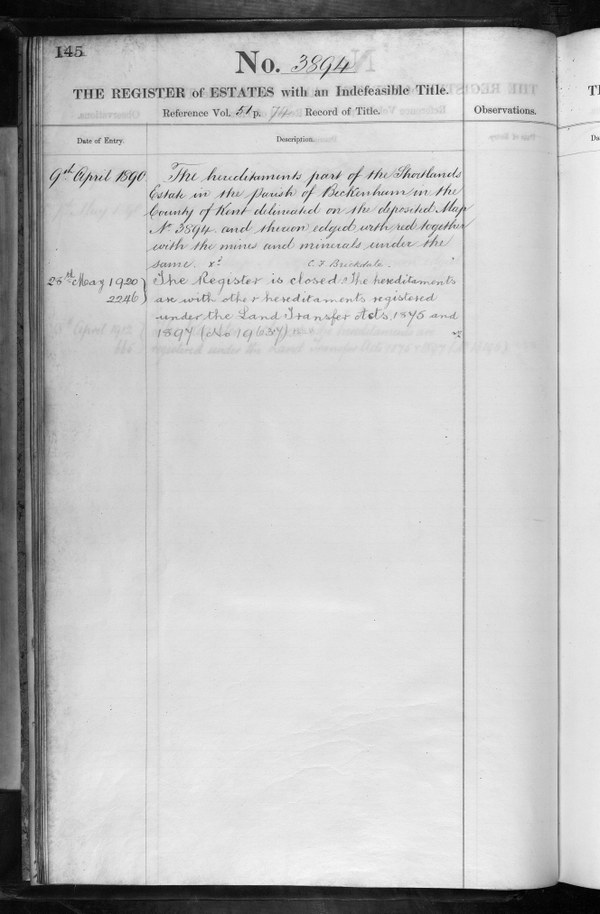 145
No. 3894
THE REGISTER of ESTATES with an Indefeasible Title.
Reference Vol. 51 p. 74 Record of Title.
Observations.
Date of Entry.
Description.
9th April 1890
The hereditaments part of the Shortlands
Estate in the Parish of Beckenham in the
County of Kent delineated on the deposited Map
No 3894 and thereon edged with red together
with the mines and minerals under the
same. C. F. Brickdale.
25th May 1920
2246
The Register is closed. The hereditaments
are with other hereditaments registered
under the Land Transfer Acts, 1875 and
1897